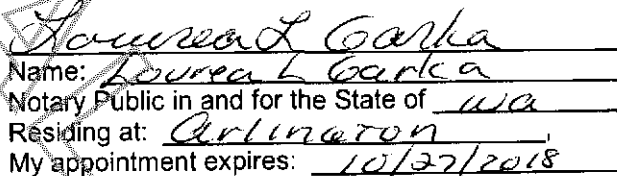 Lourea L Garka
Name: Lourea L Garka
Notary Public in and for the State of WA
Residing at: Arlington,
My appointment expires: 10/27/2018